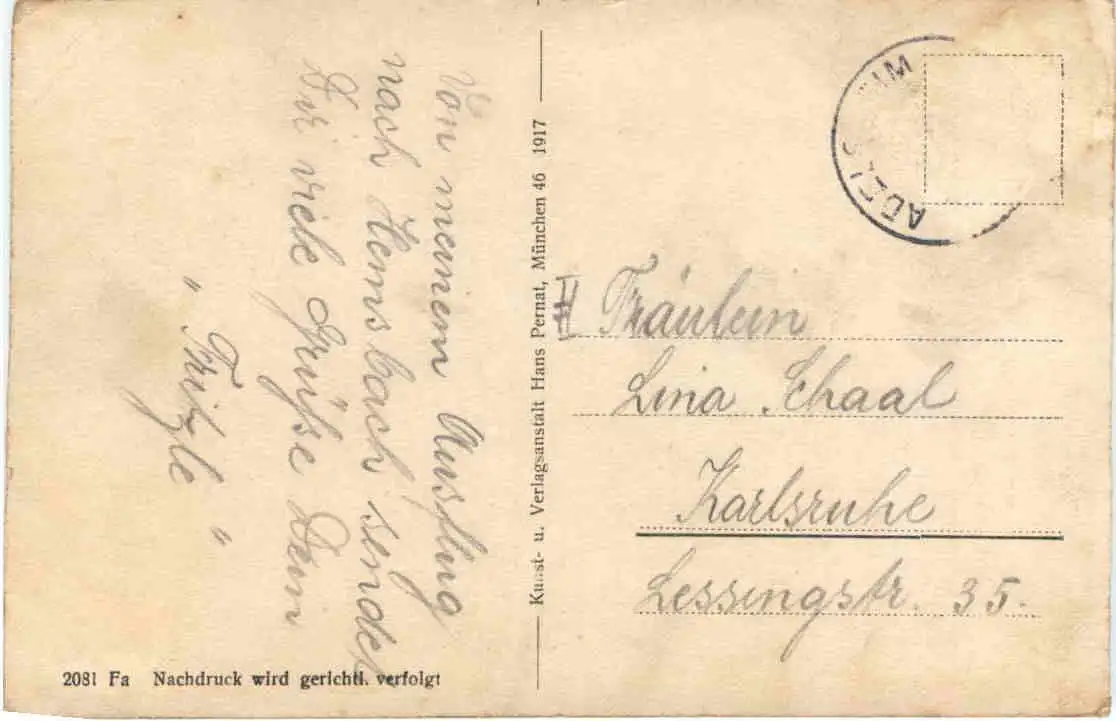 Von meinem Ausflug
nach Hemsbach sendet
Dir viele Grüße Dein
" Fritzle "
Kunst- u. Verlagsanstalt Hans Pernat, München 46 1917
Fräulein
Lina Schaal
Karlsruhe
Lessingstr. 35.
2081 Fa Nachdruck wird gerichtl. verfolgt